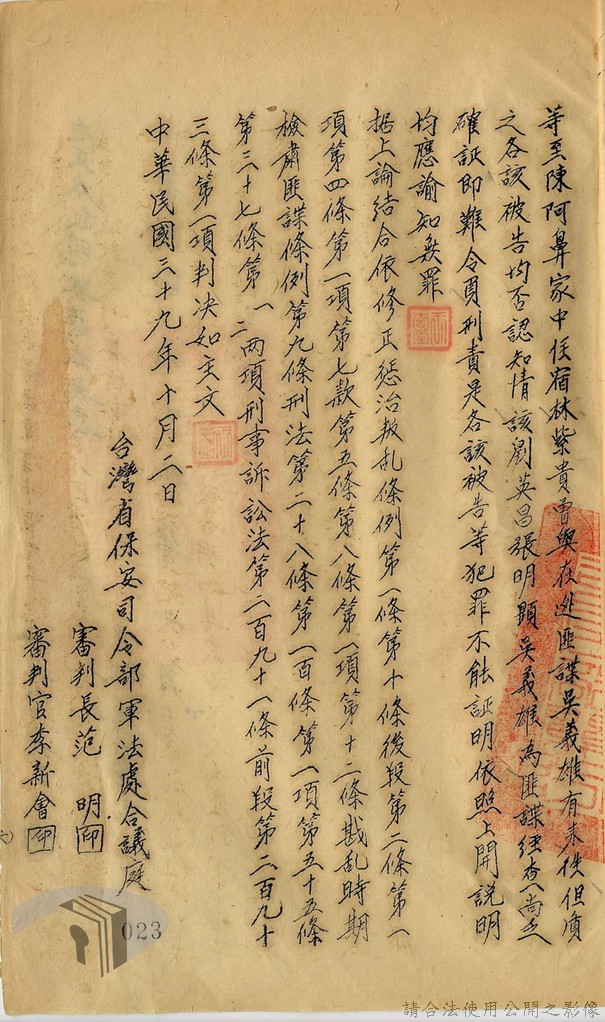 等至陳阿鼻家中住宿林紫貴曾與在逃匪諜吳義雄有來往但質
之各該被告均否認知情該劉英昌張明顯吳義雄為匪諜經查尚乏
確証即難令負刑責是各該被告等犯罪不能証明依照上開説明
均應諭知無罪
据上論結合依修正惩治叛乱條例第一條第十條後段第二條第一
項第四條第一項第七款第五條第八條第一項第十二條戡乱時期
檢肅匪諜條例第九條刑法第二十八條第一百條第一項第五十五條
第三十七條第一二兩項刑事訴訟法第二百九十一條前段第二百九十
三條第一項判决如主文
中華民國三十九年十月二日
台灣省保安司令部軍法處合議庭
審判長范明印
審判官李新會印
023
請合法使用公開之影像